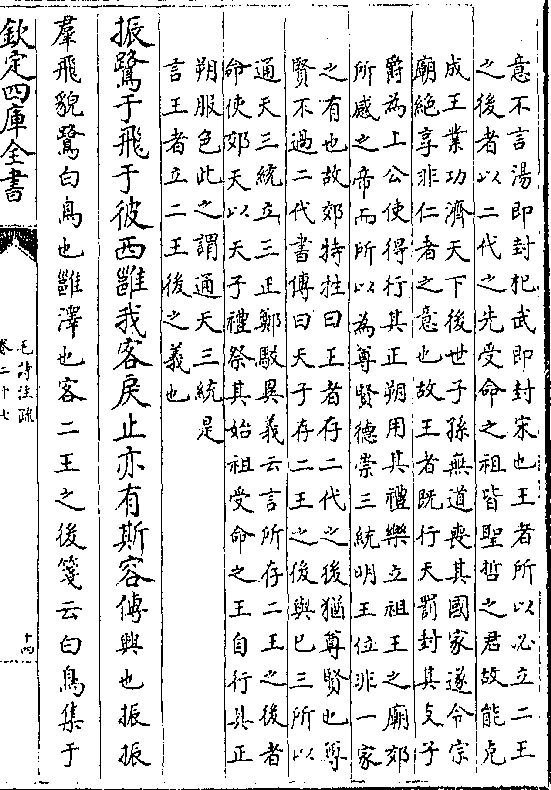 意不言湯即封杞武即封宋也王者所以必立二王
之後者以二代之先受命之祖皆聖哲之君故能克
成王業功濟天下後世子孫無道喪其國家遂令宗
廟絶享非仁者之意也故王者既行天罰封其支子
爵為上公使得行其正朔用其禮樂立祖王之廟郊
所感之帝而所以為尊賢德崇三統明王位非一家
之有也故郊特牲曰王者存二代之後猶尊賢也尊
賢不過二代書傳曰天子存二王之後與已三所以
通天三統立三正鄭駁異義云言所存二王之後者
命使郊天以天子禮祭其始祖受命之王自行其正
朔服色此之謂通天三統是
言王者立二王後之義也
振鷺于飛于彼西雝我客戾止亦有斯容傳興也振振
羣飛貌鷺白鳥也雝澤也客二王之後箋云白鳥集于
欽定四庫全書
毛詩注疏
卷二十七
十四